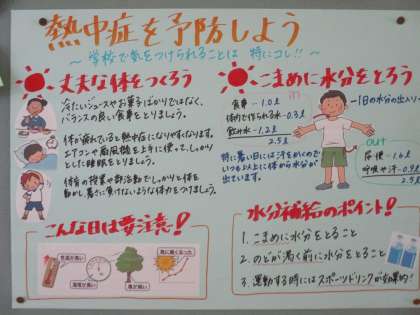 熱中症を予防しよう
～学校で気をつけられることは 特にコレ!!～
丈夫な体をつくろう
冷たいジュースやお菓子ばかりではなく、
バランスの良い食事をとりましょう。
体が疲れていると熱中症になりやすくなります。
エアコンや扇風機を上手に使って、しっかり
とした睡眠をとりましょう。
体育の授業や部活動でしっかりと体を
動かし、暑さに負けないような体力をつけましょう。
こまめに水分をとろう
1日の水分の出入り
in
食事 ー1.0ℓ
体内で作られる水ー0.3ℓ
飲み水 ー1.2ℓ
2.5ℓ
特に暑い日には汗をかくので
いつも以上に体から水分が
出ています。
out
尿・便ー1.6ℓ
呼吸や汗ー0.9ℓ
2.5ℓ
こんな日は要注意!
気温が高い
湿度が高い
風が弱い
急に暑くなった
水分補給のポイント!
1. こまめに水分をとること
2. のどが渇く前に水分をとること
3. 運動する時にはスポーツドリンクが効果的!